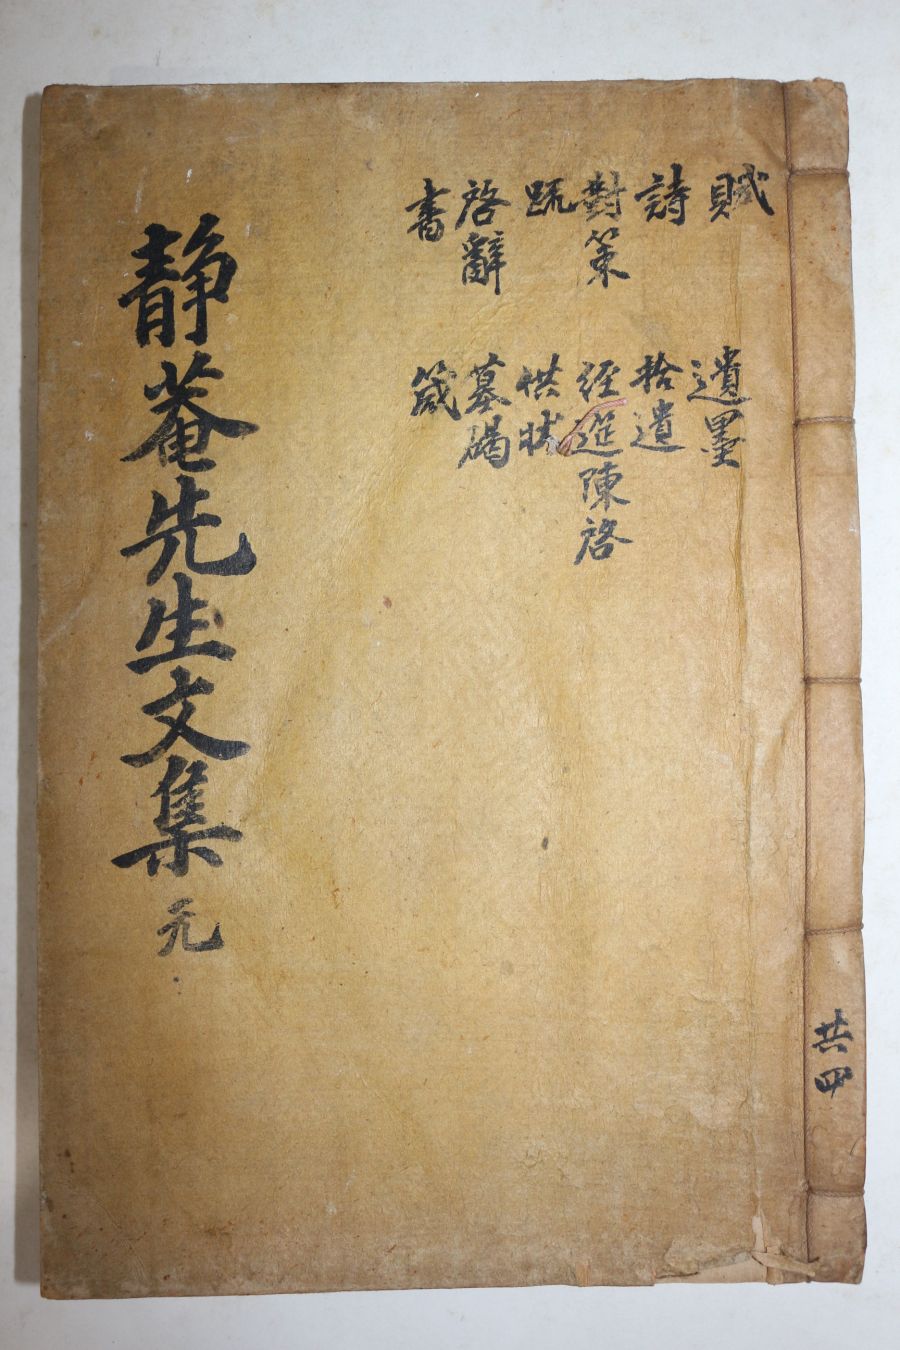 賦
詩
對策
疏
啓辭
書
遺墨
拾遺
經筵陳啓
供狀
墓碣
箴
靜菴先生文集 元
共四